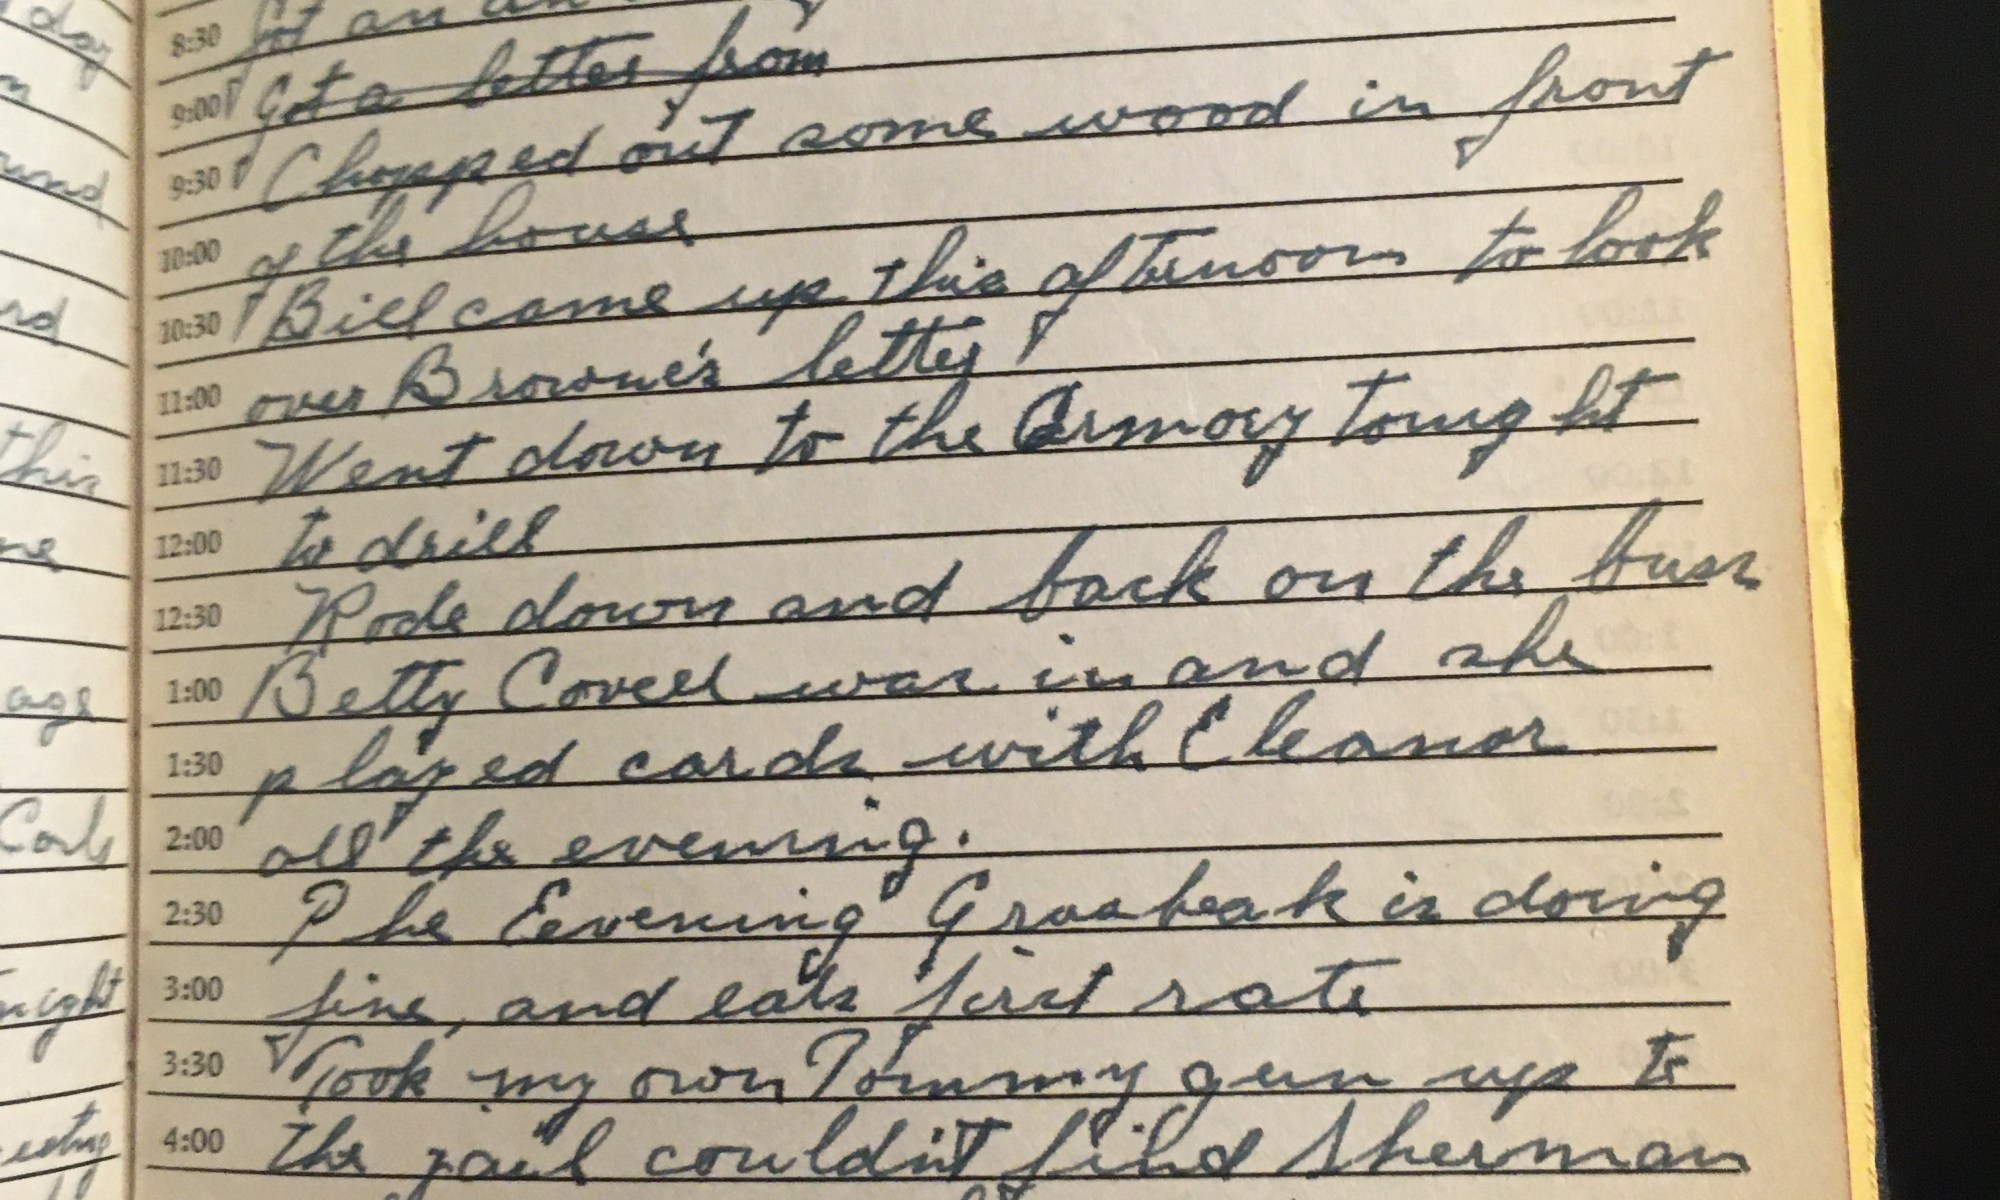 day
8:30 Got an
9:00 Got a letter from
9:30 Chopped out some wood in front
10:00 of the house
10:30 Bill came up this afternoon to look
11:00 over Browne's letter
11:30 Went down to the Armory tonight
12:00 to drill
12:30 Rode down and back on the buss
1:00 Betty Covell was in and she
1:30 played cards with Eleanor
2:00 all the evening.
2:30 The Eevening Grosbeak is doing
3:00 fine, and eats first rate
3:30 Took my own Tommy gun up to
4:00 the jail couldn't find Sherman